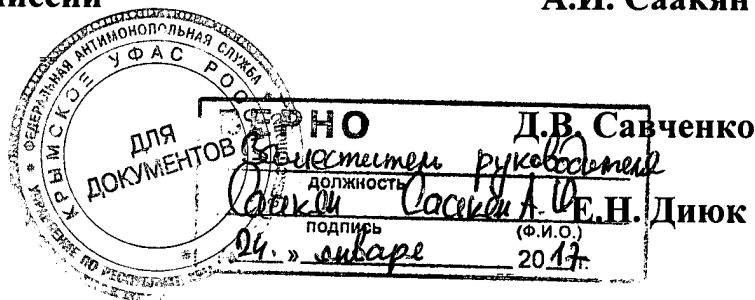 миссии А.И. Саакян
ФЕДЕРАЛЬНАЯ АНТИМОНОПОЛЬНАЯ СЛУЖБА
КРЫМСКОЕ УФАС РОССИИ
ДЛЯ
ДОКУМЕНТОВ
ВЕРНО Д.В. Савченко
Заместитель руководителя
должность
Саакян Саакян А.И. Е.Н. Диюк
подпись (Ф.И.О.)
24. » января 2017г.